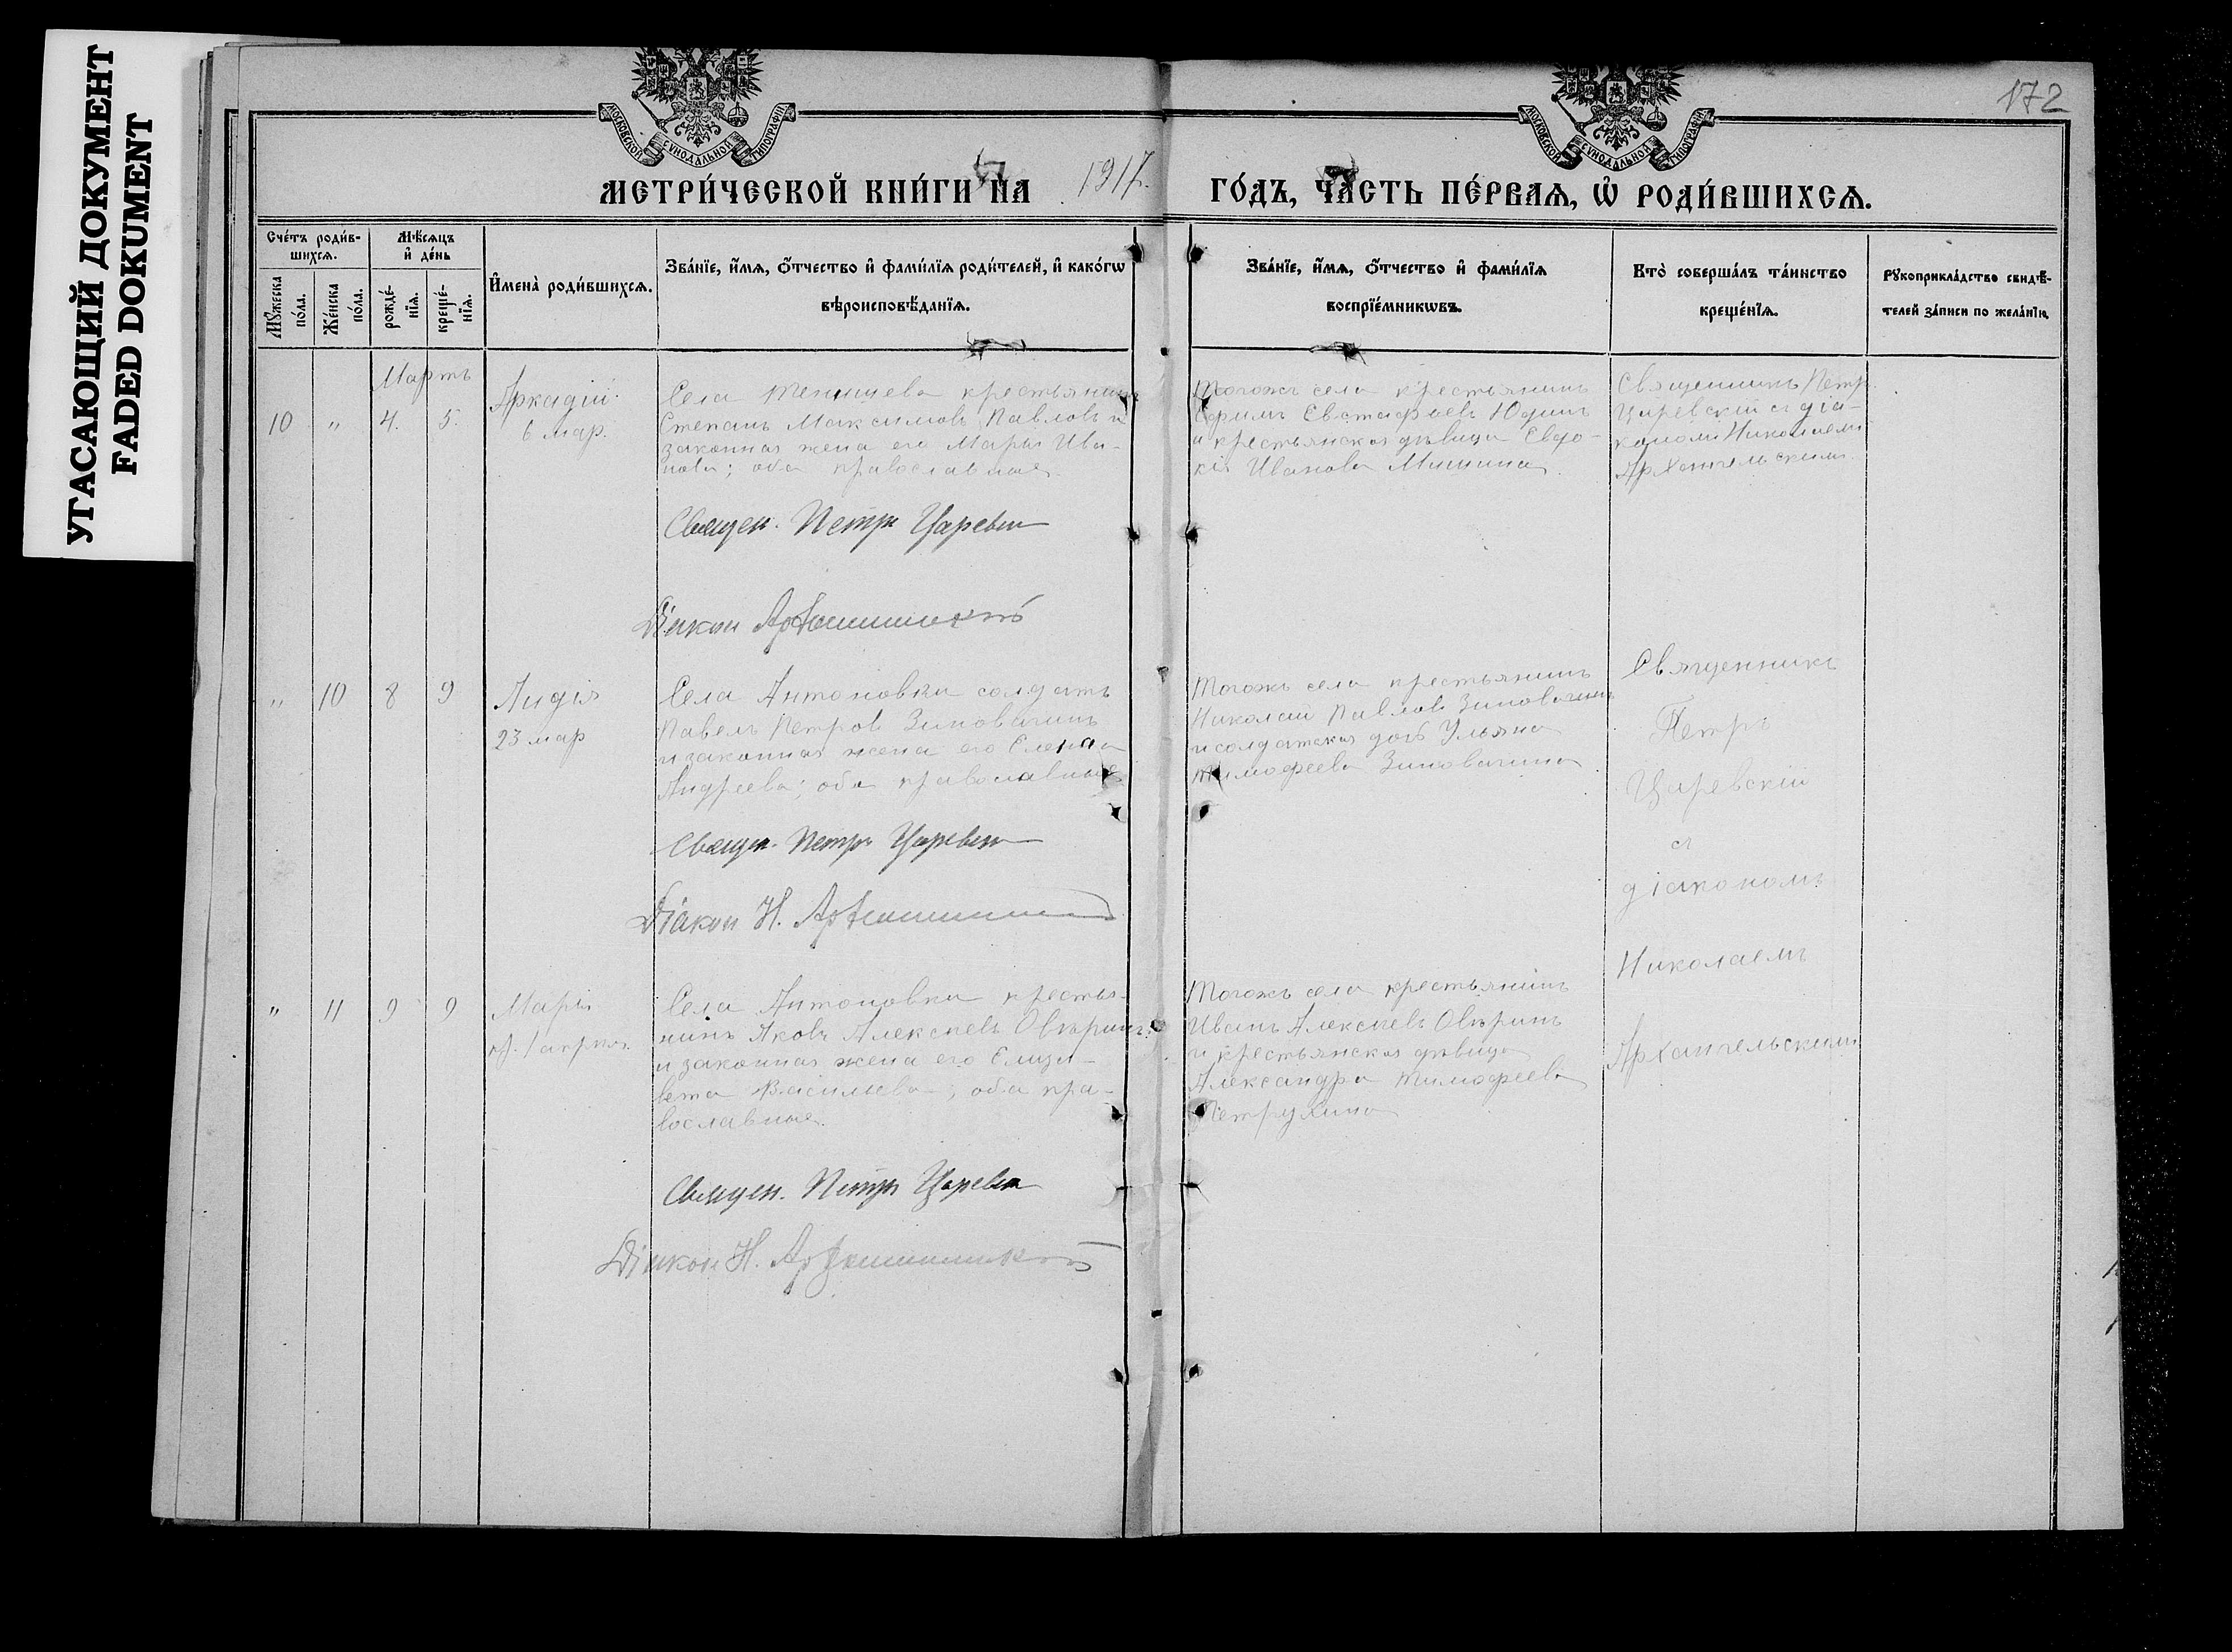 УГАСАЮЩИЙ ДОКУМЕНТ
FADED DOKUMENT
172
МОСКОВСКОЙ СѴНОДАЛЬНОЙ ТИПОГРАФІИ
МОСКОВСКОЙ СѴНОДАЛЬНОЙ ТИПОГРАФІИ
МЕТРИ́ЧЕСКОЙ КНИ́ГИ НА 1917.
ГО́ДЪ, ЧА́СТЬ ПЕ́РВАѦ, Ѡ҆ РОДИ́ВШИХСѦ.
Сче́тъ роди́в-
шихсѧ.
Мꙋ́жеска
по́ла.
Же́нска
по́ла.
Мѣ́сѧцъ
и҆ де́нь
рожде́-
нїѧ.
креще́-
нїѧ.
И҆мена̀ роди́вшихсѧ.
Зва́нїе, и҆́мѧ, ѻ҆́тчество и҆ фами́лїѧ роди́телей, и҆ како́гѡ
вѣроисповѣ́данїѧ.
Зва́нїе, и҆́мѧ, ѻ҆́тчество и҆ фами́лїѧ
воспрїе́мникѡвъ.
Кто̀ соверша́лъ та́инство
креще́нїѧ.
Рꙋкоприкла́дство свидѣ́-
телей за́писи по жела́нїю.
Мартъ
10 " 4. 5.
Аркадій
6 мар.
Села крестьянинъ
Степанъ Максимовъ Павловъ и
законная жена его Марья Ива-
нова; оба православные.
Священ. Петръ Царевск
Діакон Архангельскій
Тогожъ села крестьянинъ
Ефимъ Евстафьевъ Юдинъ
и крестьянская дѣвица Евдо-
кія Иванова Мишина.
Священникъ Петр.
Царевскій съ діа-
кономъ Николаемъ
Архангельскимъ.
" 10 8 9
Лидія
23 мар
Села Антоновки солдатъ
Павелъ Петров Зиновагинъ
и законная жена его Елена
Андреева; оба православные
Священ. Петръ Царевск
Діакон Н. Архангельскій
Тогожъ села крестьянинъ
Николай Павлов Зиновагинъ
и солдатская дочь Ульяна
Тимофеева Зиновагина
Священникъ
Петръ
Царевскій
съ
діакономъ
Николаемъ
Архангельскимъ
" 11 9 9
Марія
1 апрѣл.
Села Антоновки крестья-
нинъ Яковъ Алексѣевъ Овѣринъ
и законная жена его Елиза-
вета Васильева; оба пра-
вославные.
Священ. Петръ Царевск
Діакон Н. Архангельскій
Тогожъ села крестьянинъ
Иванъ Алексѣевъ Овѣринъ
и крестьянская дѣвица
Александра Тимофеева
Петрухина